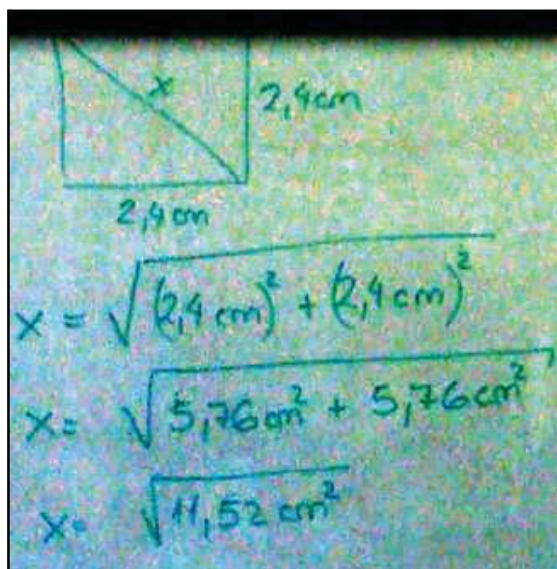 x
2,4cm
2,4cm
x = √(2,4 cm)² + (2,4 cm)²
x = √5,76cm² + 5,76cm²
x = √11,52 cm²